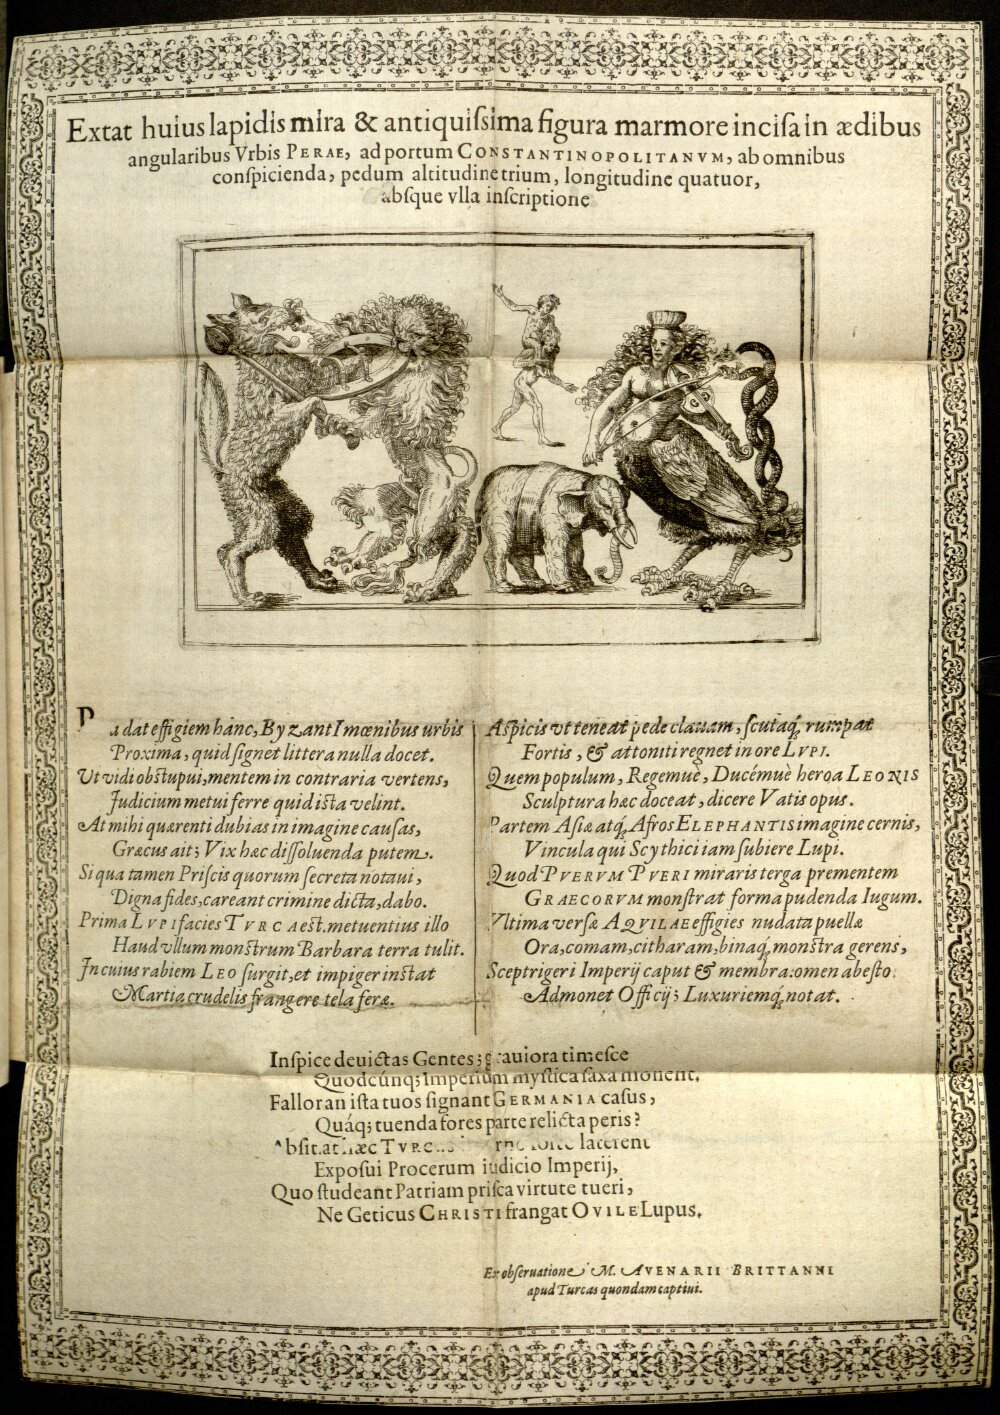 Extat huius lapidis mira & antiquiſsima figura marmore inciſa in ædibus
angularibus Vrbis PERAE, ad portum CONSTANTINOPOLITANVM, ab omnibus
conſpicienda, pedum altitudine trium, longitudine quatuor,
abſque vlla inſcriptione
dat effigiem hanc, Byzanti mœnibus urbis
Proxima, quid ſignet littera nulla docet.
Vt vidi obſtupui, mentem in contraria vertens,
Judicium metui ferre quid iſta velint.
At mihi quærenti dubias in imagine cauſas,
Græcus ait; Vix hæc diſſoluenda putem.
Si qua tamen Priſcis quorum ſecreta notaui,
Digna fides, careant crimine dicta, dabo.
Prima LVPI facies TVRCA est, metuentius illo
Haud vllum monſtrum Barbara terra tulit.
In cuius rabiem LEO ſurgit, et impiger inſtat
Martia crudelis frangere tela feræ.
Aſpicis vt teneat pede clauam, ſcutaq́, rumpat
Fortis, & attoniti regnet in ore LVPI.
Quem populum, Regemuè, Ducémuè heroa LEONIS
Sculptura hæc doceat, dicere Vatis opus.
Partem Aſiæ atq́, Afros ELEPHANTIS imagine cernis,
Vincula qui Scythici iam ſubiere Lupi.
Quod PVERVM PVERI miraris terga prementem
GRAECORVM monſtrat forma pudenda Iugum.
Vltima verſæ AQVILAE effigies nudata puellæ
Ora, comam, citharam, binaq́, monſtra gerens,
Sceptrigeri Imperij caput & membra: omen abeſto.
Admonet Officij; Luxuriemq́, notat.
Inſpice deuictas Gentes; grauiora timeſce
Quodcúnq; Imperium myſtica ſaxa monent.
Fallor an iſta tuos ſignant GERMANIA caſus,
Quáq; tuenda fores parte relicta peris?
Abſit. at hæc TVRC laterent
Expoſui Procerum iudicio Imperij,
Quo ſtudeant Patriam priſca virtute tueri,
Ne Geticus CHRISTI frangat OVILE Lupus.
Ex obſeruatione M. AVENARII BRITTANNI
apud Turcas quondam captiui.